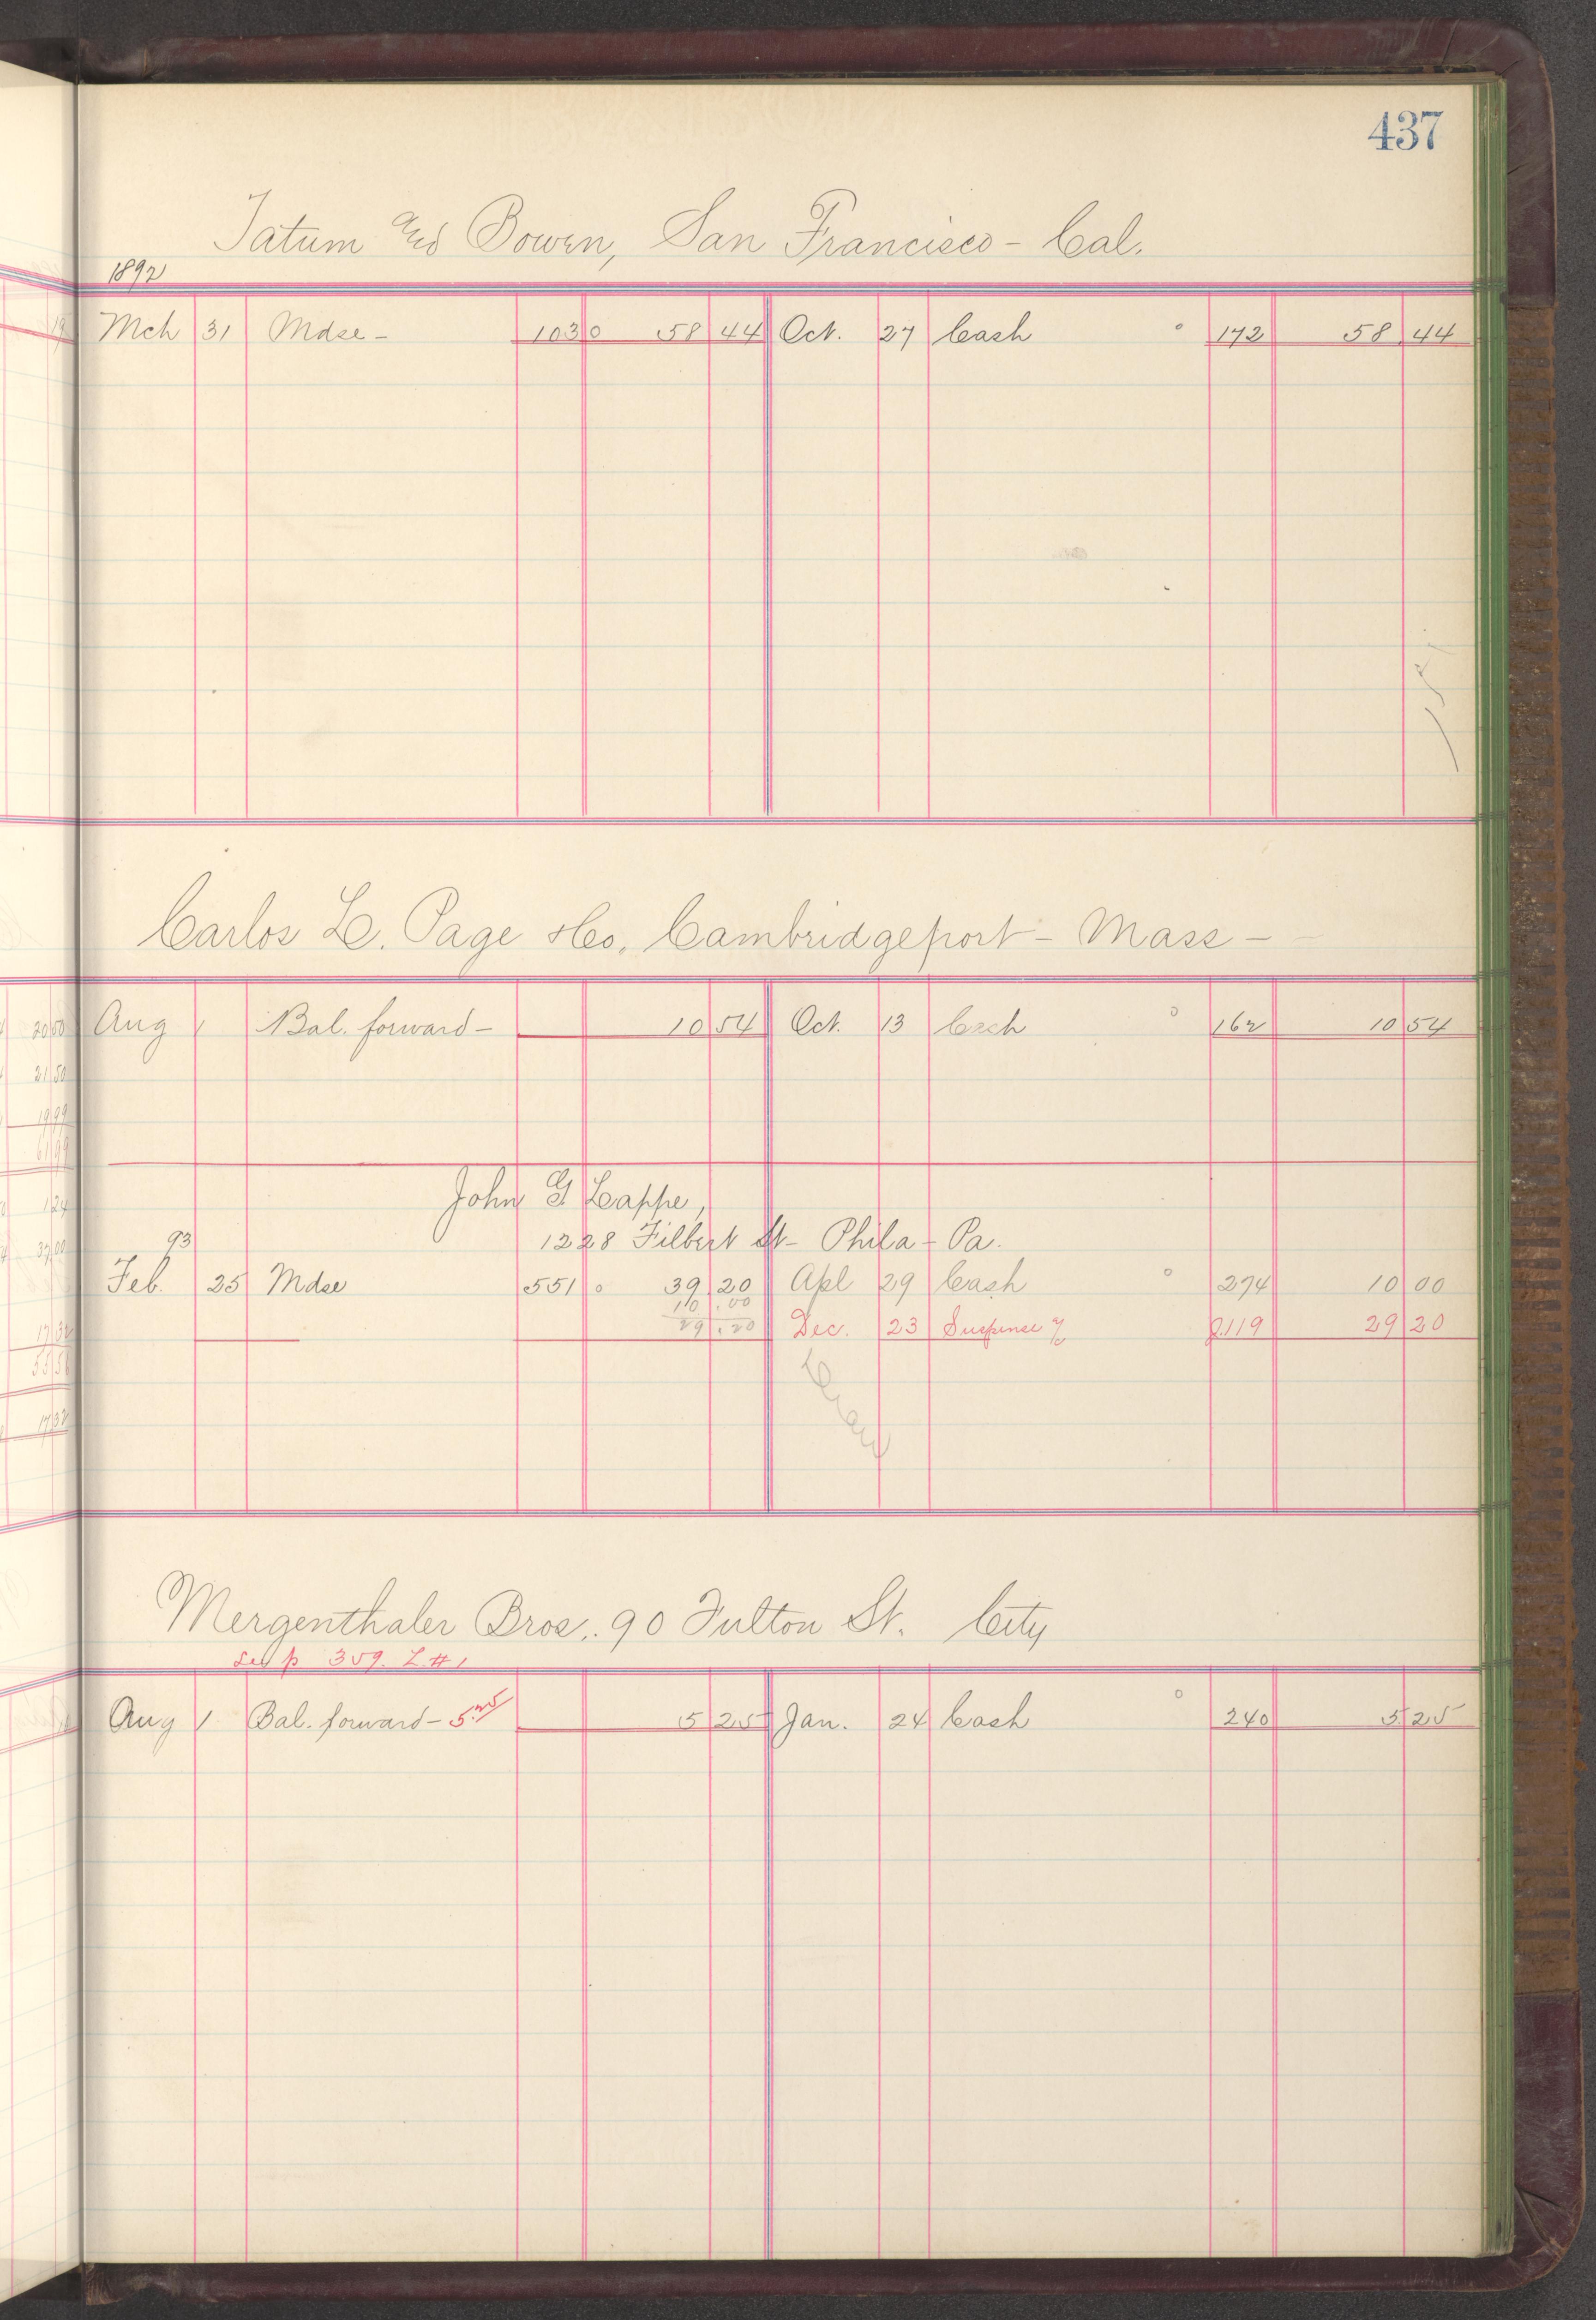 437
Tatum and Bowen, San Francisco - Cal.
1892
Mch 31 Mdse - 103 0 58 44 Oct. 27 Cash 172 58 44
Carlos L. Page & Co. Cambridgeport - Mass -
Aug 1 Bal. forward - 10 54 Oct. 13 Cash 162 10 54
John G Lappe,
93 1228 Filbert St - Phila - Pa.
Feb. 25 Mdse 551 0 39 20 Apl 29 Cash 274 10 00
10.00
29.20 Dec. 23 Suspense a/c J119 29 20
Mergenthaler Bros. 90 Fulton St. City
See p 359. L#1
Aug 1 Bal. forward - 5.25 5 25 Jan. 24 Cash 240 5 25